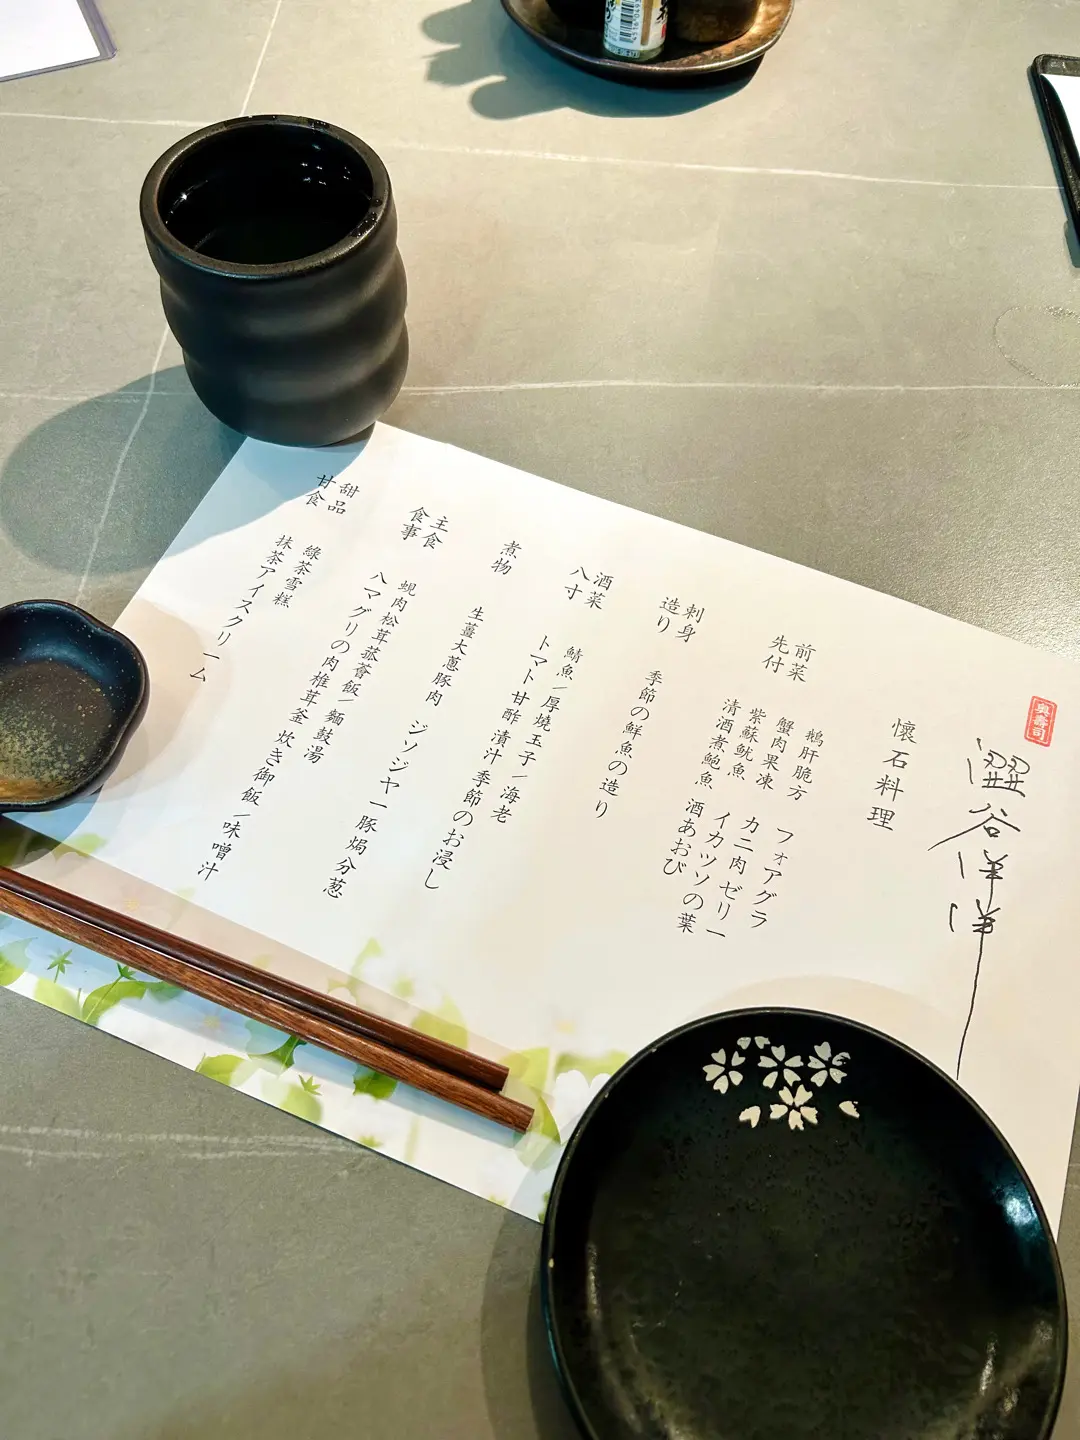 奥壽司
澀谷洋洋
懷石料理
前菜
先付
鵝肝脆方 フォアグラ
蟹肉果凍 カニ肉ゼリー
紫蘇魷魚 イカツソの葉
清酒煮鮑魚 酒あおび
刺身
造り
季節の鮮魚の造り
酒菜
八寸
鯖魚/厚燒玉子/海老
トマト甘酢漬汁 季節のお浸し
煮物
生薑大蔥豚肉 ジソジヤー豚焗分葱
主食
食事
蜆肉松茸菰蒼飯/麵鼓湯
ハマグリの肉椎茸釜炊き御飯/味噌汁
甜品
甘食
綠茶雪糕
抹茶アイスクリーム